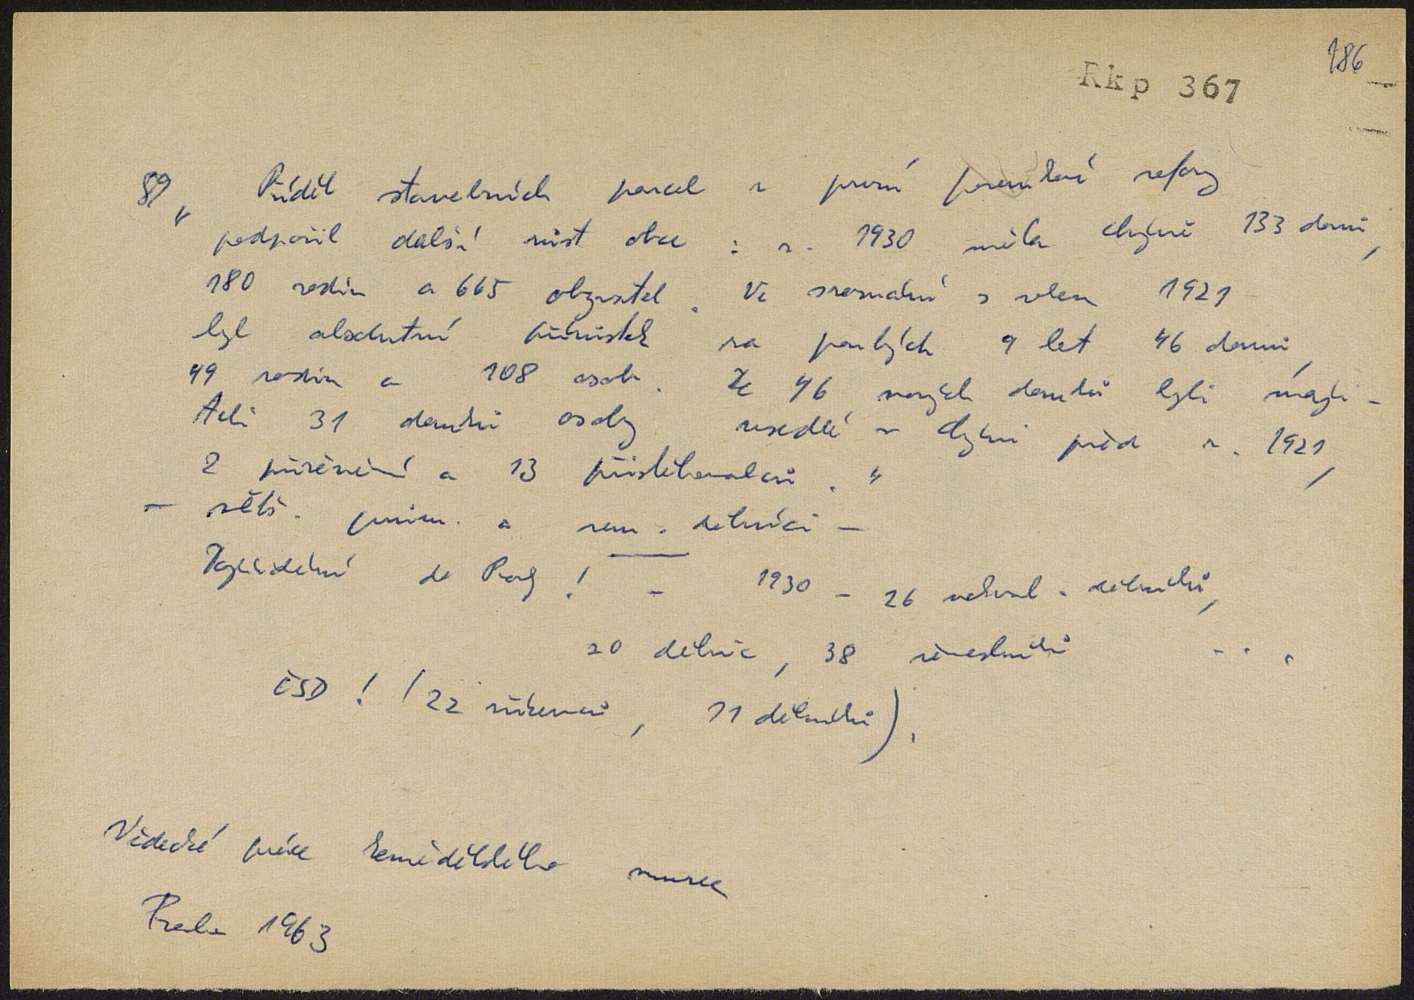 186
Rkp 367
89 „ Příděl stavebních parcel z první pozemkové reformy
podpořil další růst obce : r. 1930 měla Chýně 133 domů,
180 rodin a 665 obyvatel. Ve srovnání s rokem 1921
byl absolutní přírůstek za pouhých 9 let 46 domů,
49 rodin a 108 osob. Ze 46 nových domků byli maji-
teli 31 domků osoby usedlé v Chýni před r. 1921,
2 přiženění a 13 přistěhovalců. "
– větš. prům. a zem. dělníci –
Vyjíždění do Prahy ! – 1930 – 26 nekval. dělníků,
20 dělnic, 38 řemeslníků . . .
ČSD ! (22 zřízenců, 11 dělníků).
Vědecké práce Zemědělského muzea
Praha 1963